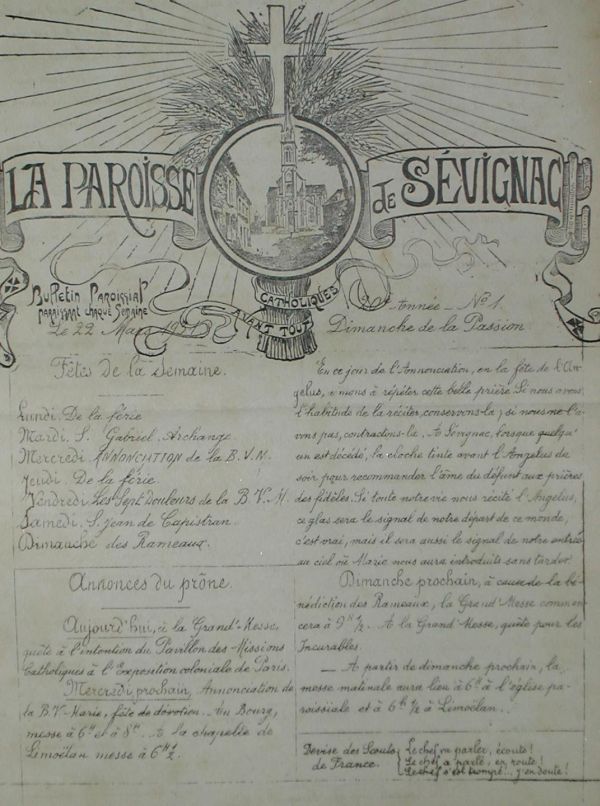 LA PAROISSE de SÉVIGNAC
CATHOLIQUES
AVANT TOUT
Bulletin Paroissial
PARAISSANT CHAQUE SEMAINE
Le 22 Mars
Année - No 1.
Dimanche de la Passion
Fêtes de la Semaine.
Lundi. De la férie
Mardi. S. Gabriel, Archange.
Mercredi. ANNONCIATION de la B.V.M.
Jeudi. De la férie.
Vendredi. Les Sept Douleurs de la B.V.M.
Samedi. S. Jean de Capistran.
Dimanche des Rameaux.
Annonces du prône.
Aujourd'hui, à la Grand'Messe,
quête à l'intention du Pavillon des Missions
Catholiques à l'Exposition coloniale de Paris.
Mercredi prochain, Annonciation de
la B.V. Marie, fête de dévotion. Au Bourg,
messe à 6h et à 8h. A la chapelle de
Limoëlan messe à 6h 1/2.
En ce jour de l'Annonciation, en la fête de l'An-
gelus, aimons à répéter cette belle prière. Si nous avons
l'habitude de la réciter, conservons-la; si nous ne l'a-
vons pas, contractons-la. A Sévignac, lorsque quelqu'
un est décédé, la cloche tinte avant l'Angelus du
soir pour recommander l'âme du défunt aux prières
des fidèles. Si toute notre vie nous récité l'Angelus,
ce glas sera le signal de notre départ de ce monde,
c'est vrai, mais il sera aussi le signal de notre entrée
au ciel où Marie nous aura introduits sans tarder.
Dimanche prochain, à cause de la bé-
nédiction des Rameaux, la Grand'Messe commen-
cera à 9h 1/2. A la Grand'Messe, quête pour les
Incurables.
- A partir de dimanche prochain, la
messe matinale aura lieu à 6h à l'église pa-
roissiale et à 6h 1/2 à Limoëlan.
Devise des Scouts
de France.
Le chef va parler, écoute!
Le chef a parlé, en route!
Le chef s'est trompé!.. j'en doute!